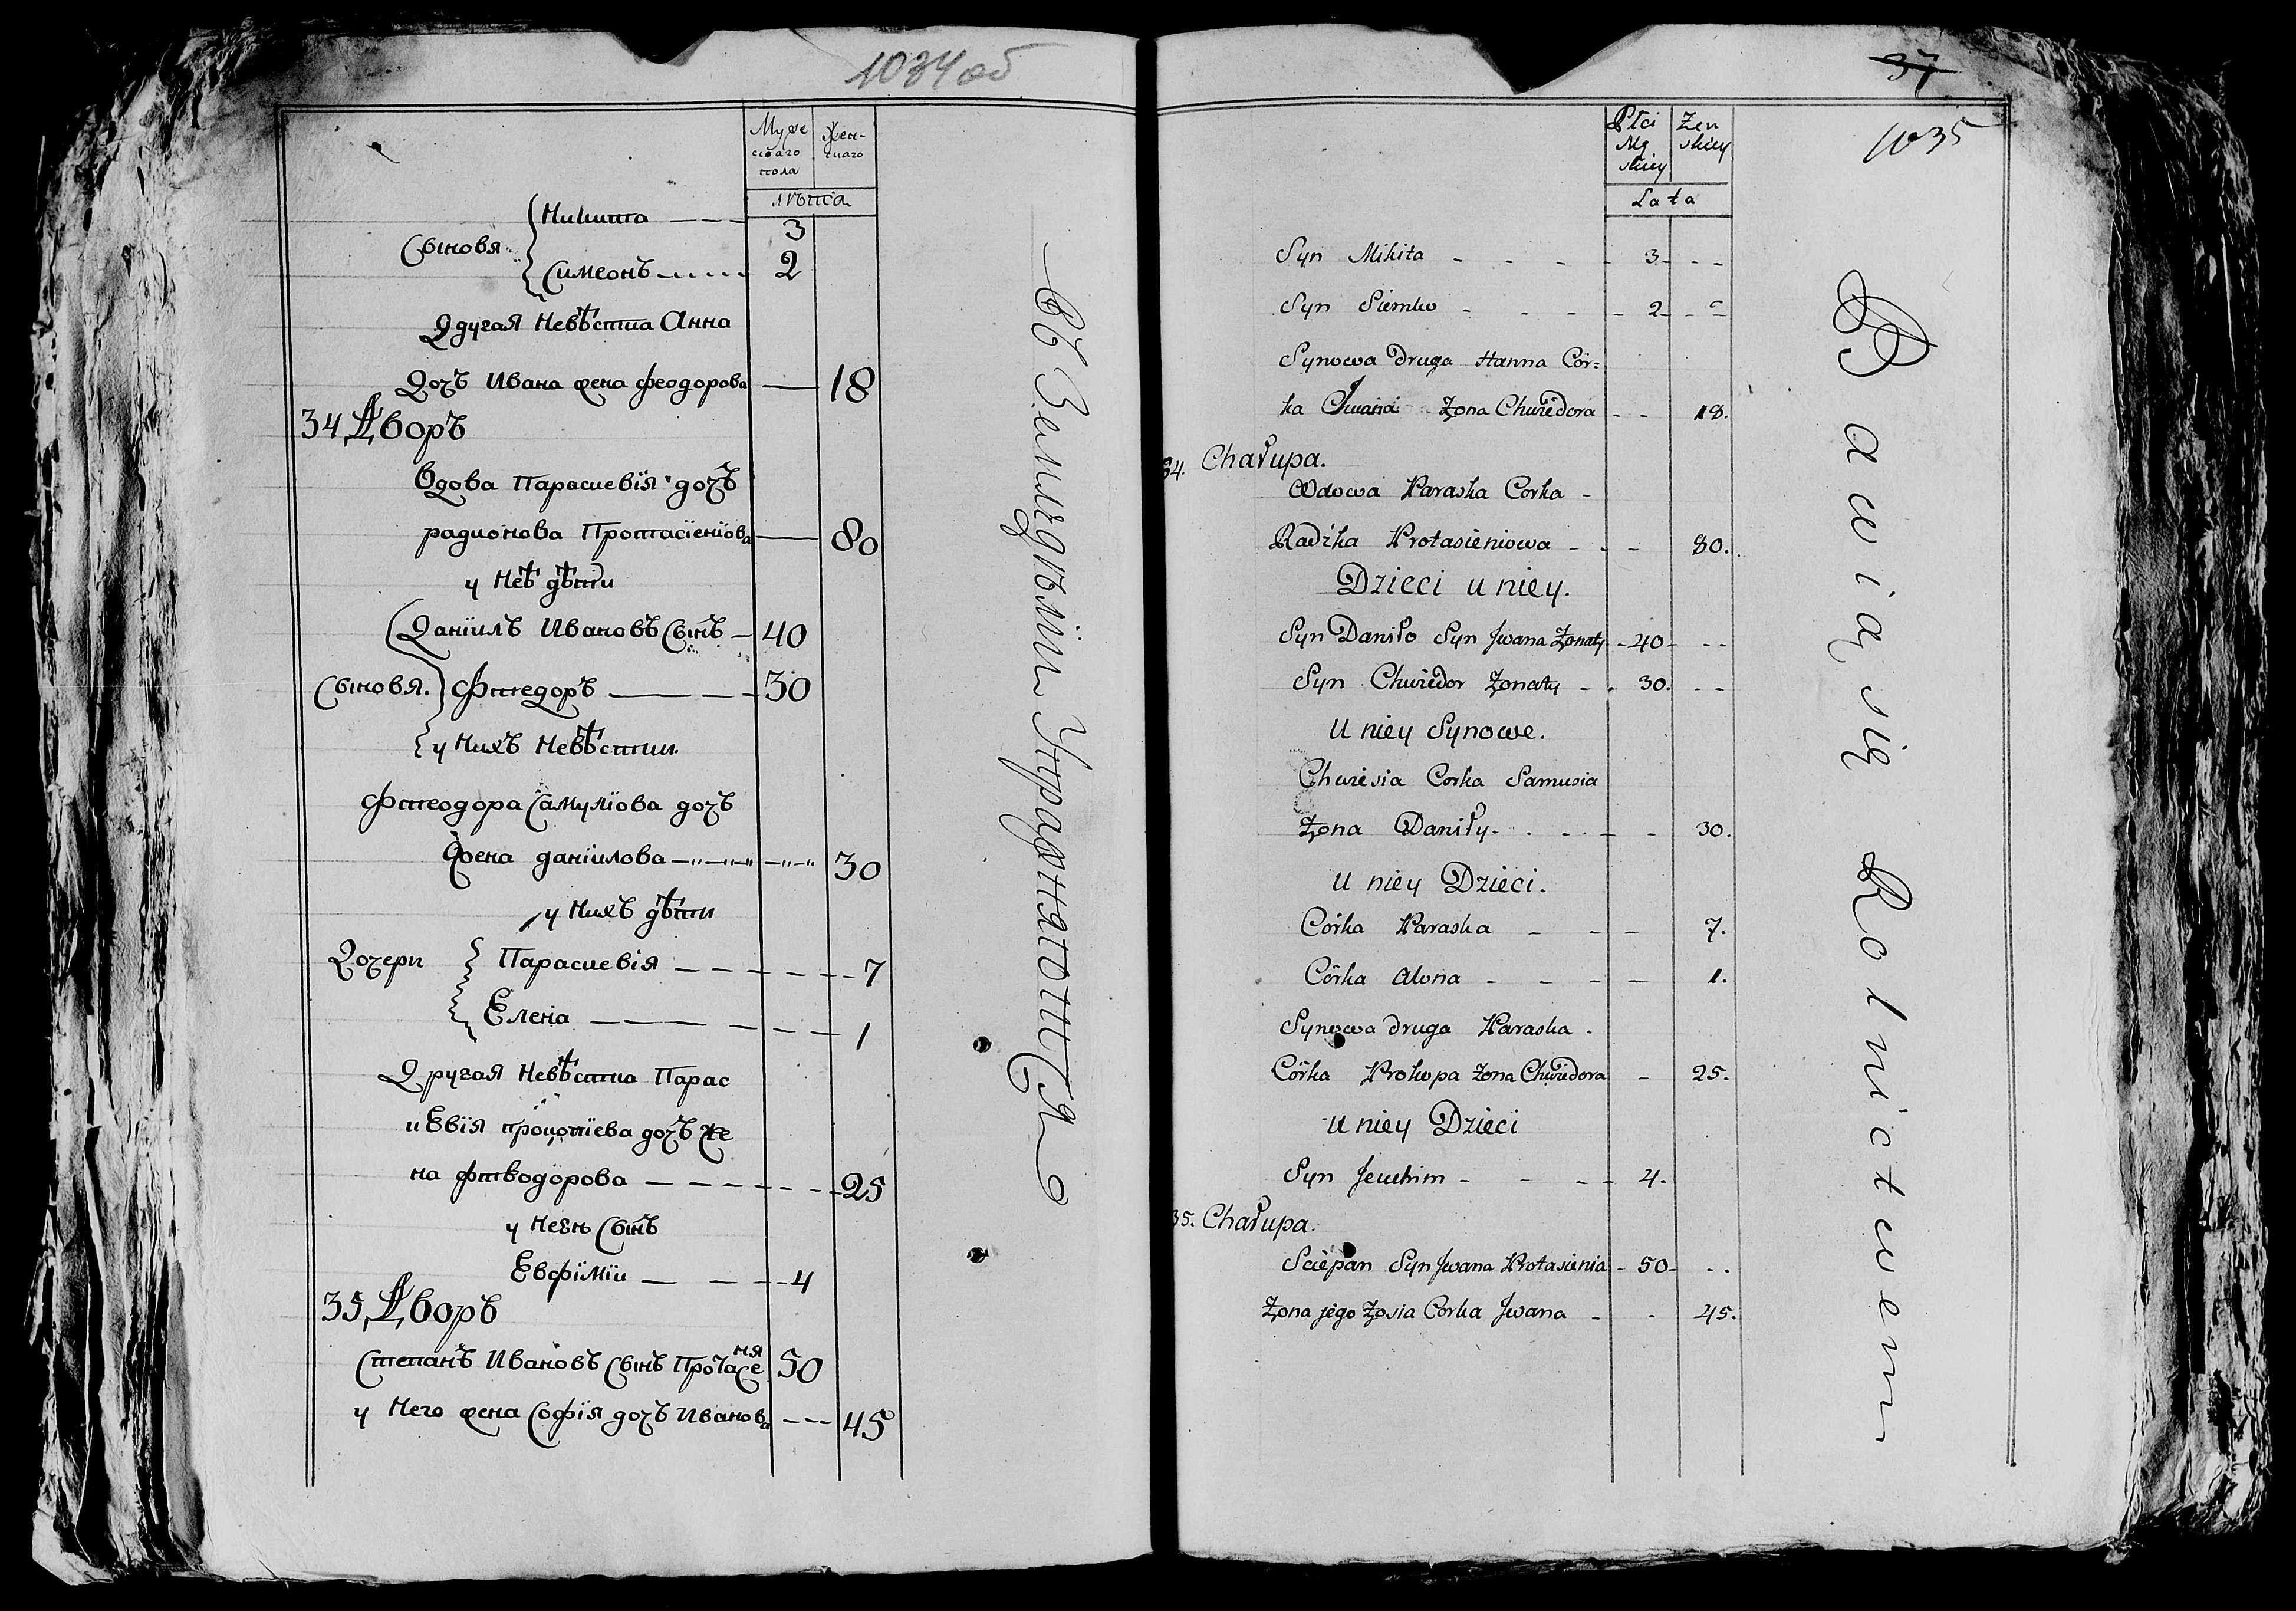 1034 об
Мужескаго пола
Женскаго
лѣта
Сыновя
Никита — — — 3
Симеонъ - - - - - 2
Другая Невѣстка Анна
Дочь Ивана жена феодорова — 18
34 Дворъ
Вдова Параскевія дочь
радионова Протасіеніова — 80
у Неѣ дѣти
Даніилъ Ивановъ Сынъ — 40
Сыновя. Фтедоръ — — — 30
у Нихъ Невѣстки
Фтеодора Самуліова дочь
Жена даніилова — — — 30
у Нихъ дѣти
Дочери
Параскевія — — — — — 7
Елена — — — — — 1
Другая Невѣстка Парас
кЕвія прокопіева дочь Же
на фтеодорова — — — — — 25
у Неѣи Сынъ
Евфіміи — — — 4
35 Дворъ
Степанъ Ивановъ Сынъ Протасеня 50
у Него жена Софія дочь Иванова — — — 45
Въ Земледѣліи Упражняютъся
37
1035
Płci Męskiey
Żenskiey
Lata
Syn Mikita - - - - 3 - - -
Syn Siemko - - - - 2 - - -
Synowa Druga Hanna Cór=
ka Jwana Żona Chwiedora - - 18.
34. Chałupa.
Wdowa Paraska Corka -
Radźka Protasieniowa - - - 80.
Dzieci u niey.
Syn Daniło Syn Jwana Żonaty - 40 - - -
Syn Chwiedor Żonaty - - 30. - -
U niey Synowe.
Chwiesia Corka Samusia
Żona Daniły - - - - - 30.
U niey Dzieci.
Córka Paraska - - - 7.
Córka Alona - - - - 1.
Synowa druga Paraska.
Córka Prokopa Żona Chwiedora - 25.
U niey Dzieci
Syn Jeuchim - - - - 4.
35. Chałupa.
Sciepan Syn Jwana Protasienia - 50 - - -
Żona jego Zosia Corka Jwana - - 45.
Bawią się Rolnictwem